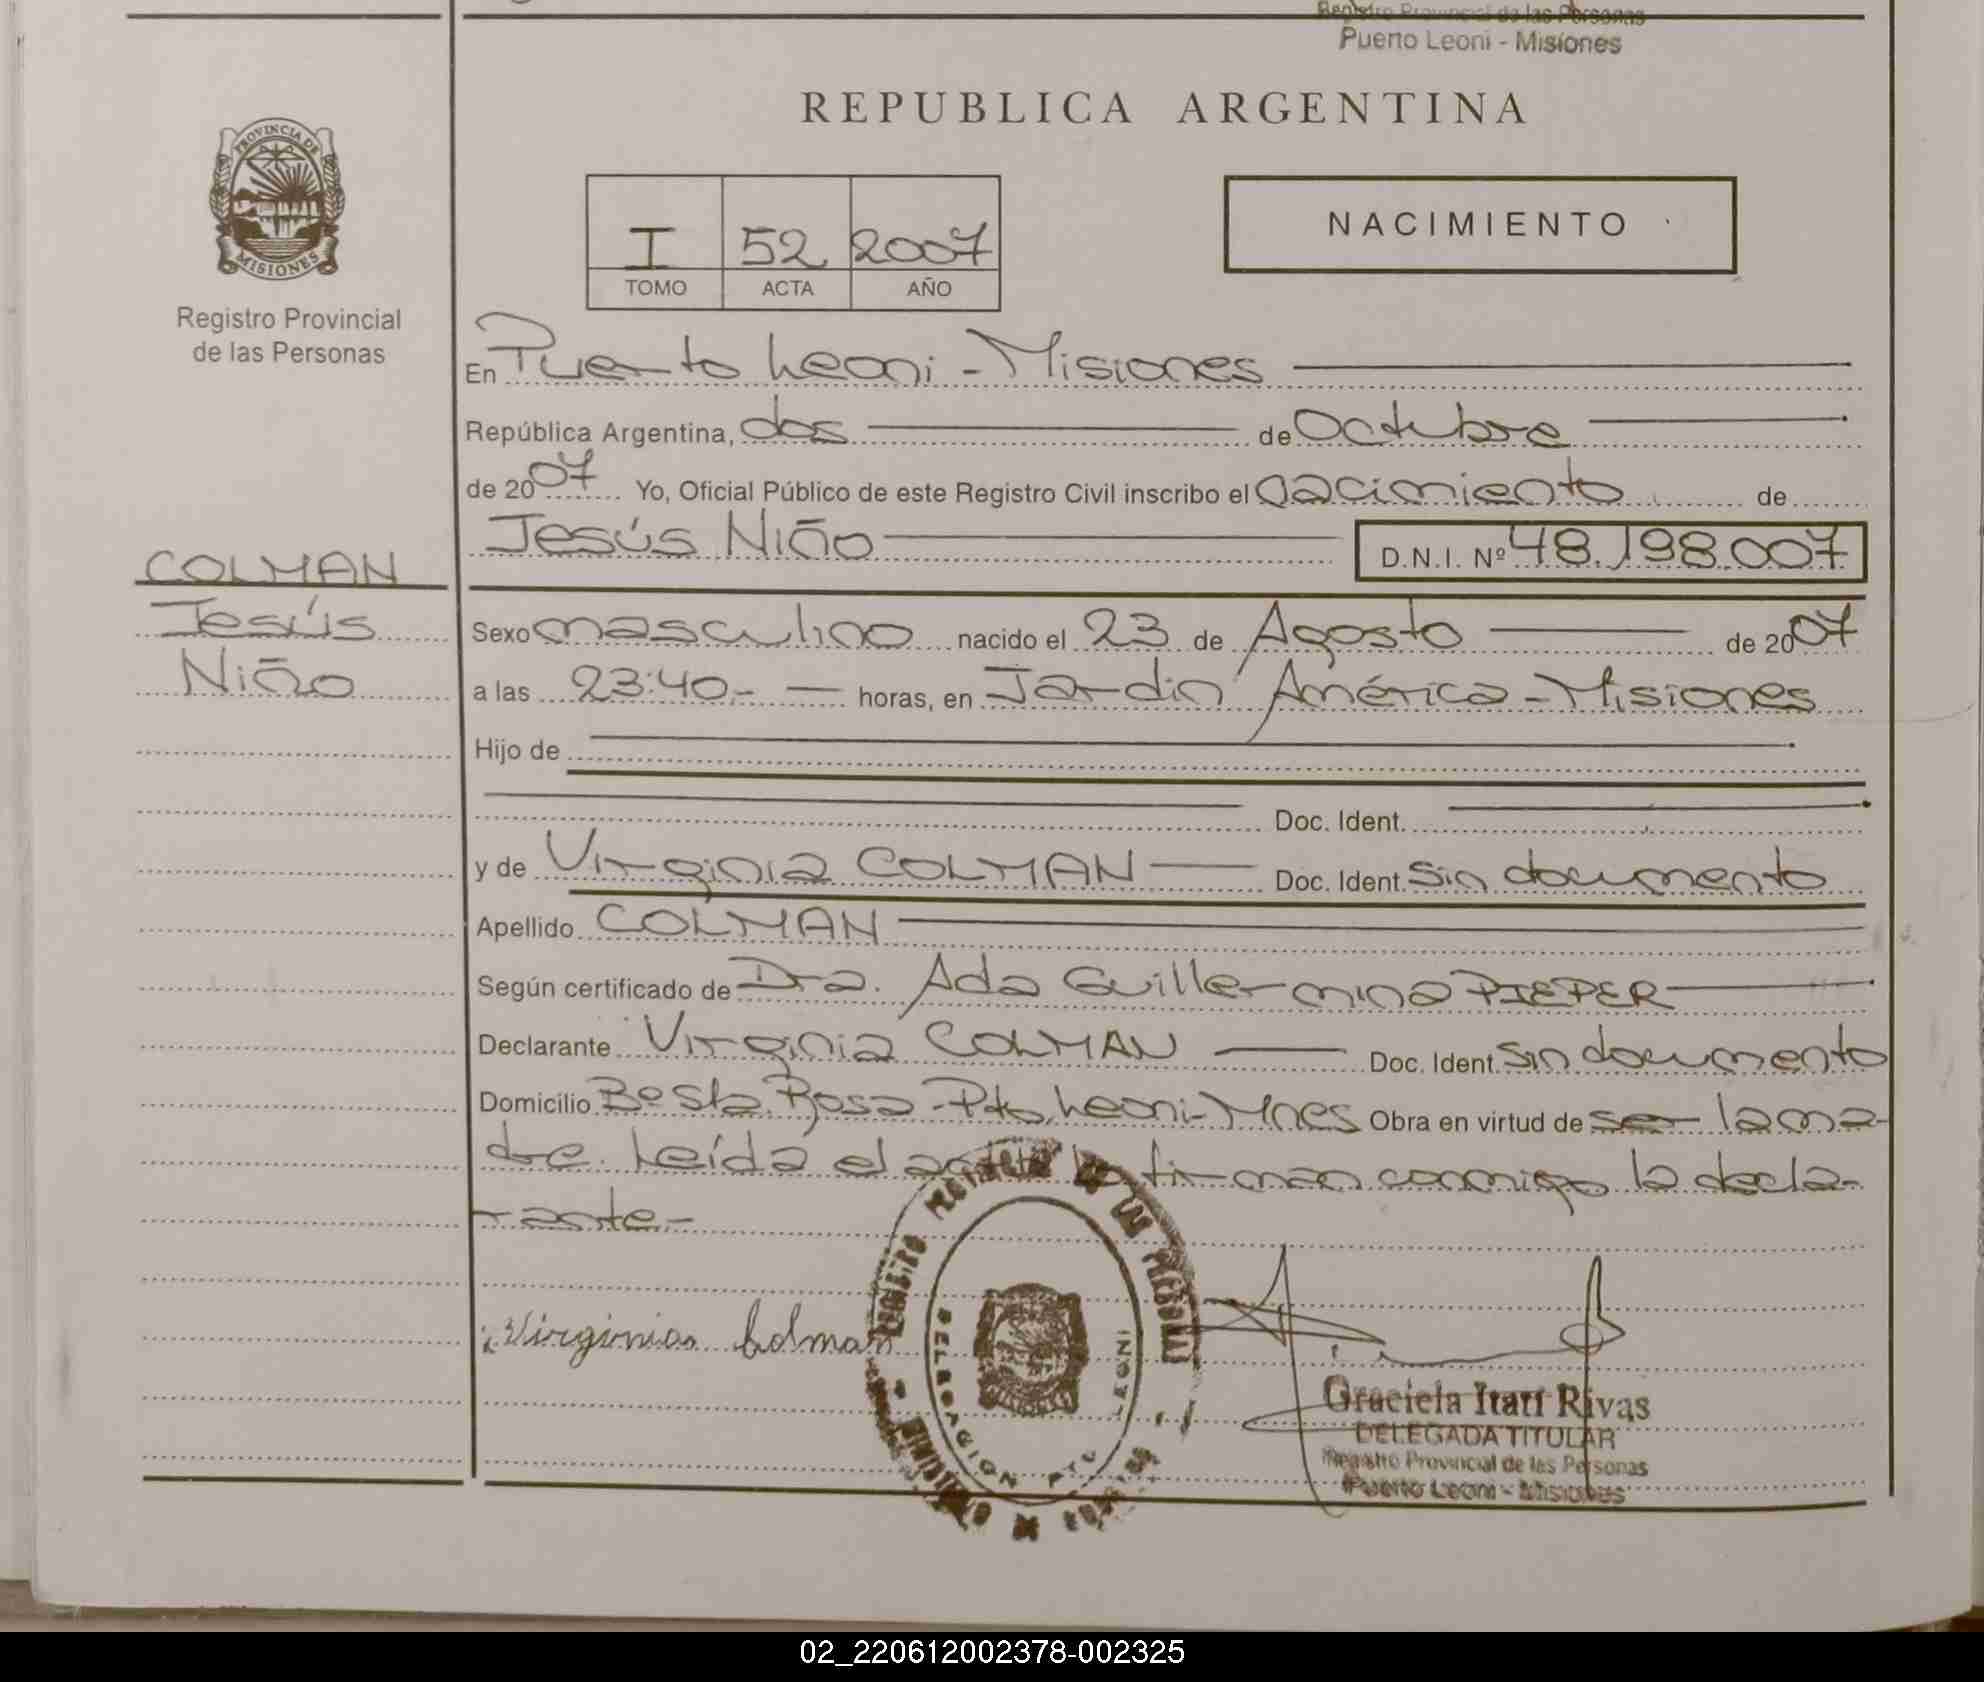 Registro Provincial de las Personas
Puerto Leoni - Misiones
REPUBLICA ARGENTINA
PROVINCIA DE
MISIONES
Registro Provincial
de las Personas
I 52 2007
TOMO ACTA AÑO
NACIMIENTO
En Puerto Leoni - Misiones
República Argentina, dos de Octubre
de 2007 Yo, Oficial Público de este Registro Civil inscribo el nacimiento de
Jesús Niño D.N.I. Nº 48.198.007
COLMAN
Jesús
Niño
Sexo masculino nacido el 23 de Agosto de 2007
a las 23:40.- horas, en Jardin América - Misiones
Hijo de
Doc. Ident.
y de Virginia COLMAN Doc. Ident. Sin documento
Apellido COLMAN
Según certificado de Dra. Ada Guillermina PIEPER
Declarante Virginia COLMAN Doc. Ident. Sin documento
Domicilio Bº Sta. Rosa - Pto. Leoni - Mnes Obra en virtud de ser la ma-
dre. Leída el acta la firman conmigo la decla-
rante.-
Virginia Colman
REGISTRO PROVINCIAL DE LAS PERSONAS
DELEGACION PTO LEONI
Graciela Itatí Rivas
DELEGADA TITULAR
Registro Provincial de las Personas
Puerto Leoni - Misiones
02_220612002378-002325